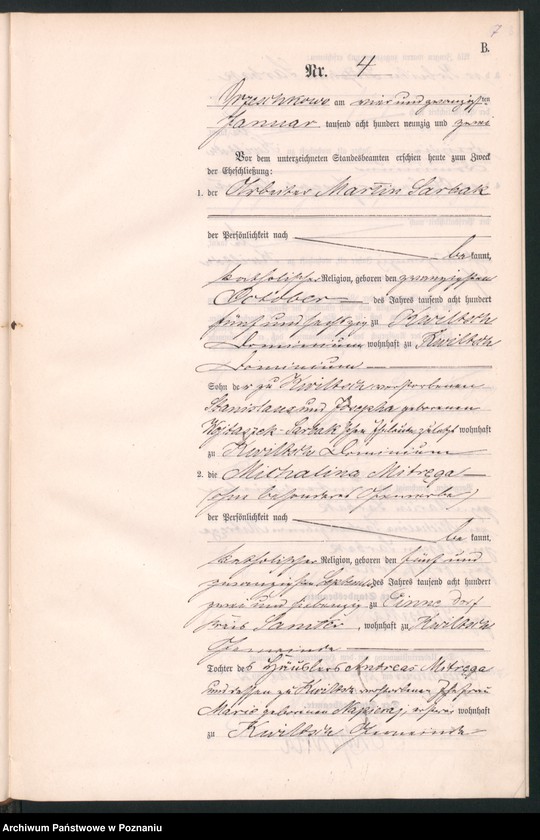 7
B.
Nr. 4
Orzeschkowo am vier und zwanzigsten
Januar tausend acht hundert neunzig und zwei
Vor dem unterzeichneten Standesbeamten erschien heute zum Zweck
der Eheschließung:
1. der Arbeiter Martin Sarbak
der Persönlichkeit nach
be kannt,
katholischer Religion, geboren den zwanzigsten
October des Jahres tausend acht hundert
fünf und sechzig zu Kwiltsch
Dominium wohnhaft zu Kwiltsch
Dominium
Sohn der zu Kwiltsch verstorbenen
Stanislaus und Josepha geborenen
Sarbak'schen Eheleute zuletzt wohnhaft
zu Kwiltsch Dominium
2. die Michalina Mitrega
ohne besonderes Gewerbe
der Persönlichkeit nach
be kannt,
katholischer Religion, geboren den fünf und
zwanzigsten September des Jahres tausend acht hundert
zwei und siebenzig zu
Kreis Samter, wohnhaft zu Kwiltsch
Gemeinde
Tochter des Häuslers Andreas Mitrega
und dessen zu Kwiltsch verstorbenen Ehefrau
Marie geborenen ersterer wohnhaft
zu Kwiltsch Gemeinde
Archiwum Państwowe w Poznaniu
szukajwarchiwach.gov.pl